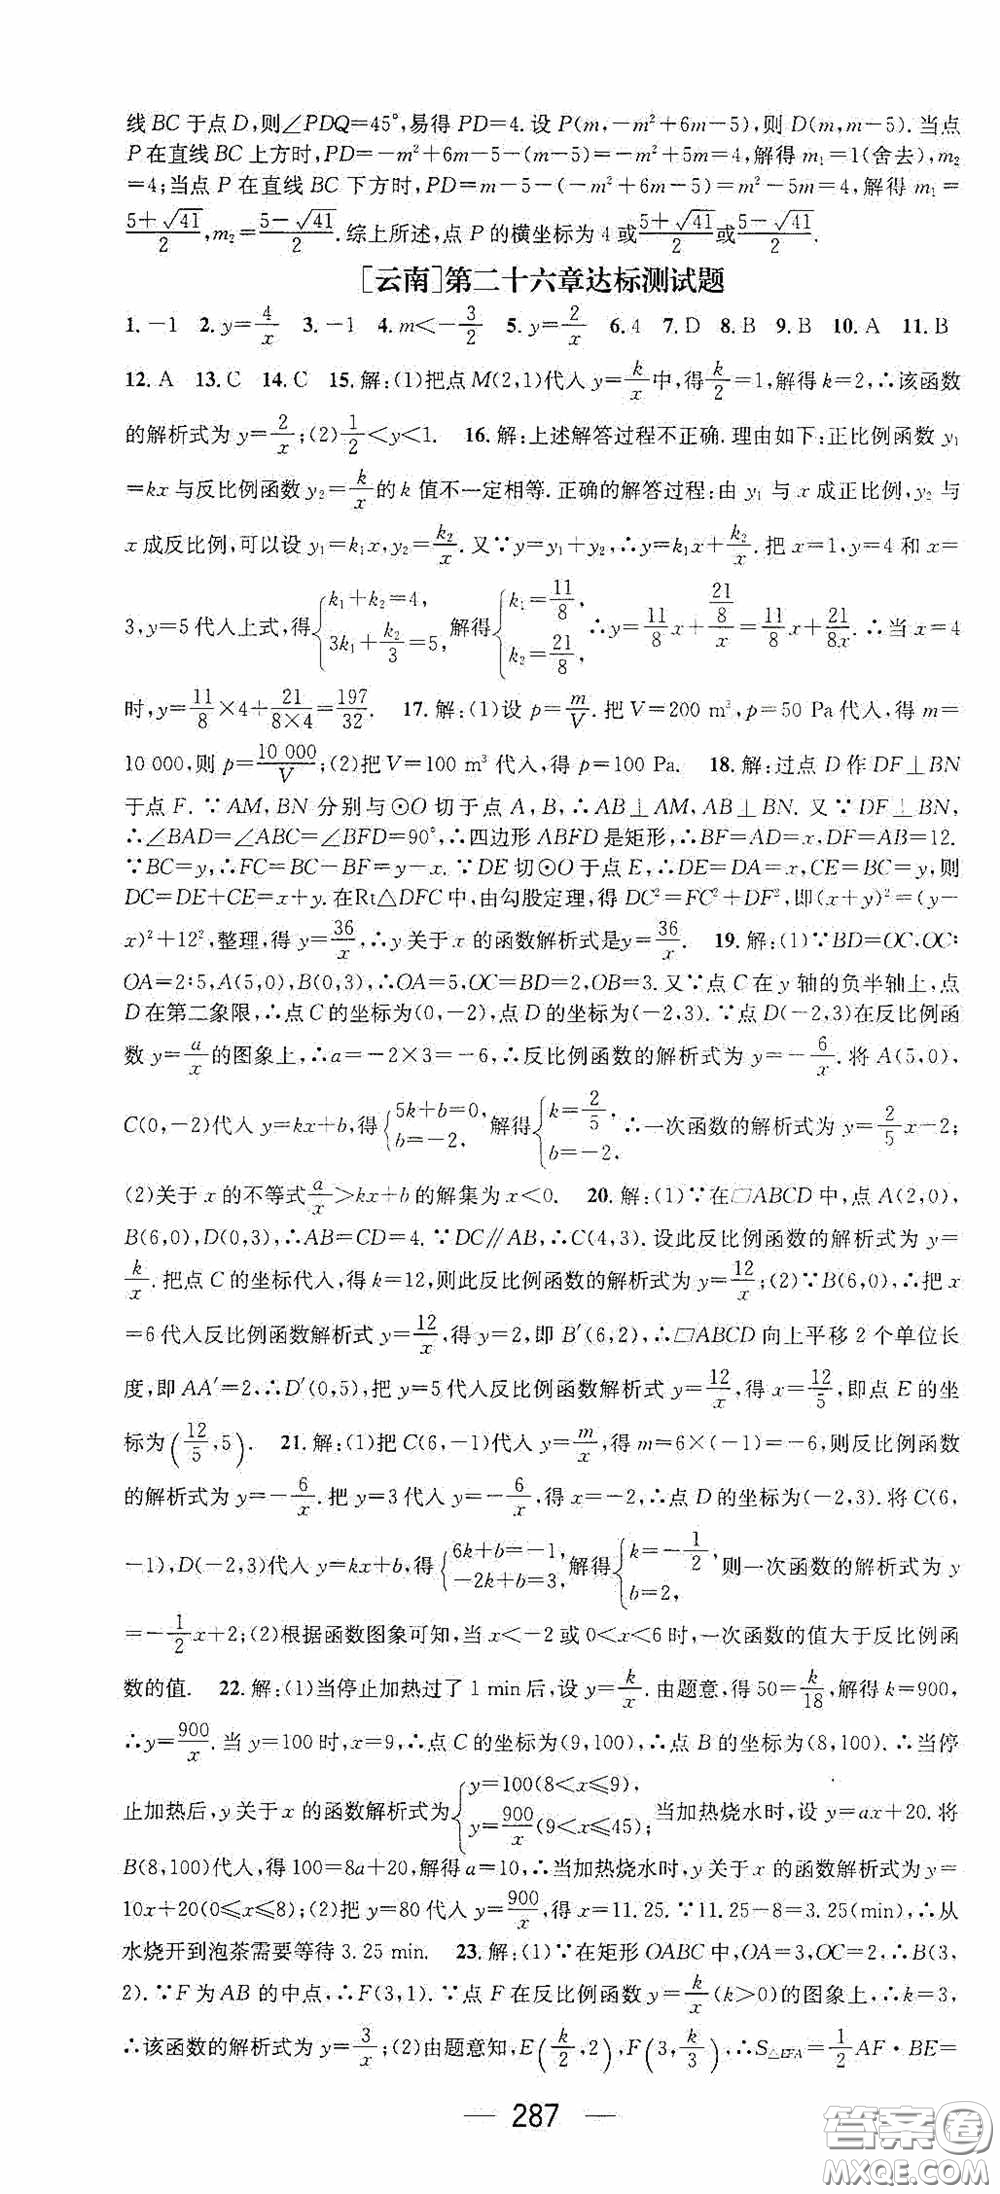 线BC于点D,则∠PDQ=45°,易得PD=4.设P(m,-m²+6m-5),则D(m,m-5).当点
P在直线BC上方时,PD=-m²+6m-5-(m-5)=-m²+5m=4,解得m₁=1(舍去),m₂
=4;当点P在直线BC下方时,PD=m-5-(-m²+6m-5)=m²-5m=4,解得m₁=
(5+√41)/2,m₂=(5-√41)/2.综上所述,点P的横坐标为4或(5+√41)/2或(5-√41)/2.
[云南]第二十六章达标测试题
1.-1 2.y=4/x 3.-1 4.m<-3/2 5.y=2/x 6.4 7.D 8.B 9.B 10.A 11.B
12.A 13.C 14.C 15.解:(1)把点M(2,1)代入y=k/x中,得k/2=1,解得k=2,∴该函数
的解析式为y=2/x;(2)1/2<y<1. 16.解:上述解答过程不正确.理由如下:正比例函数y₁
=kx与反比例函数y₂=k/x的k值不一定相等.正确的解答过程:由y₁与x成正比例,y₂与
x成反比例,可以设y₁=k₁x,y₂=k₂/x.又∵y=y₁+y₂,∴y=k₁x+k₂/x.把x=1,y=4和x=
3,y=5代入上式,得{k₁+k₂=4, 3k₁+k₂/3=5,解得{k₁=11/8, k₂=21/8,∴y=11/8x+(21/8)/x=11/8x+21/8x.∴当x=4
时,y=11/8×4+21/(8×4)=197/32. 17.解:(1)设p=m/V.把V=200 m³,p=50 Pa代入,得m=
10 000,则p=10 000/V;(2)把V=100 m³代入,得p=100 Pa. 18.解:过点D作DF⊥BN
于点F.∵AM,BN分别与⊙O切于点A,B,∴AB⊥AM,AB⊥BN.又∵DF⊥BN,
∴∠BAD=∠ABC=∠BFD=90°,∴四边形ABFD是矩形,∴BF=AD=x,DF=AB=12.
∵BC=y,∴FC=BC-BF=y-x.∵DE切⊙O于点E,∴DE=DA=x,CE=BC=y,则
DC=DE+CE=x+y.在Rt△DFC中,由勾股定理,得DC²=FC²+DF²,即(x+y)²=(y-
x)²+12²,整理,得y=36/x,∴y关于x的函数解析式是y=36/x. 19.解:(1)∵BD=OC,OC:
OA=2:5,A(5,0),B(0,3),∴OA=5,OC=BD=2,OB=3.又∵点C在y轴的负半轴上,点
D在第二象限,∴点C的坐标为(0,-2),点D的坐标为(-2,3).∵点D(-2,3)在反比例函
数y=a/x的图象上,∴a=-2×3=-6,∴反比例函数的解析式为y=-6/x.将A(5,0),
C(0,-2)代入y=kx+b,得{5k+b=0, b=-2,解得{k=2/5, b=-2.∴一次函数的解析式为y=2/5x-2;
(2)关于x的不等式a/x>kx+b的解集为x<0. 20.解:(1)∵在▱ABCD中,点A(2,0),
B(6,0),D(0,3),∴AB=CD=4.∵DC∥AB,∴C(4,3).设此反比例函数的解析式为y=
k/x.把点C的坐标代入,得k=12,则此反比例函数的解析式为y=12/x;(2)∵B(6,0),∴把x
=6代入反比例函数解析式y=12/x,得y=2,即B′(6,2),∴▱ABCD向上平移2个单位长
度,即AA′=2,∴D′(0,5),把y=5代入反比例函数解析式y=12/x,得x=12/5,即点E的坐
标为(12/5,5). 21.解:(1)把C(6,-1)代入y=m/x,得m=6×(-1)=-6,则反比例函数
的解析式为y=-6/x.把y=3代入y=-6/x,得x=-2,∴点D的坐标为(-2,3).将C(6,
-1),D(-2,3)代入y=kx+b,得{6k+b=-1, -2k+b=3,解得{k=-1/2, b=2,则一次函数的解析式为y
=-1/2x+2;(2)根据函数图象可知,当x<-2或0<x<6时,一次函数的值大于反比例函
数的值. 22.解:(1)当停止加热过了1 min后,设y=k/x.由题意,得50=k/18,解得k=900,
∴y=900/x.当y=100时,x=9,∴点C的坐标为(9,100),∴点B的坐标为(8,100).∴当停
止加热后,y关于x的函数解析式为{y=100(8<x≤9), y=900/x(9<x≤45);当加热烧水时,设y=ax+20.将
B(8,100)代入,得100=8a+20,解得a=10,∴当加热烧水时,y关于x的函数解析式为y=
10x+20(0≤x≤8);(2)把y=80代入y=900/x,得x=11.25.∵11.25-8=3.25(min),∴从
水烧开到泡茶需要等待3.25 min. 23.解:(1)∵在矩形OABC中,OA=3,OC=2,∴B(3,
2).∵F为AB的中点,∴F(3,1).∵点F在反比例函数y=k/x(k>0)的图象上,∴k=3,
∴该函数的解析式为y=3/x;(2)由题意知,E(k/2,2),F(3,k/3),∴S△EFA=1/2AF·BE=
— 287 —
答案圈
MXQE.COM